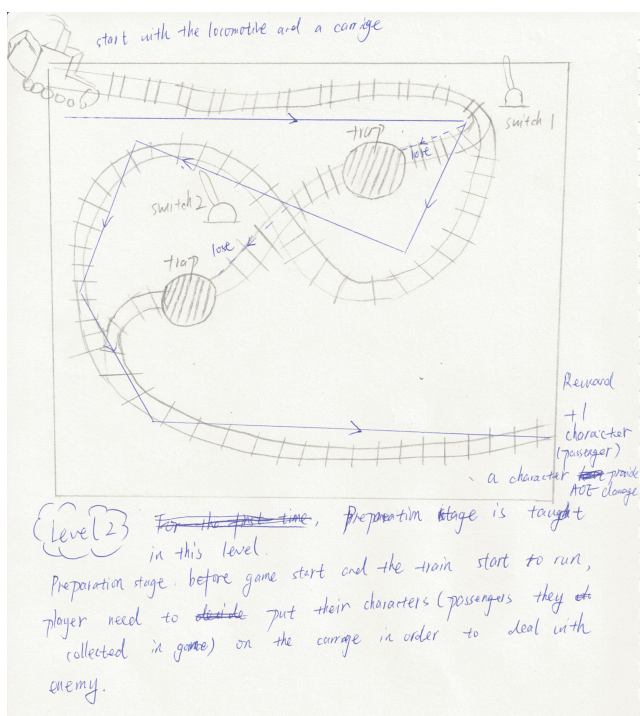 start with the locomotive and a carriage
switch 1
trap
lose
switch 2
lose
trap
Reward
+1
character
(passenger)
a character provide
AOE damage
Level 2
For the first time, Preparation stage is taught
in this level.
Preparation stage. before game start and the train start to run,
player need to decide put their characters (passengers they
collected in game) on the carriage in order to deal with
enemy.